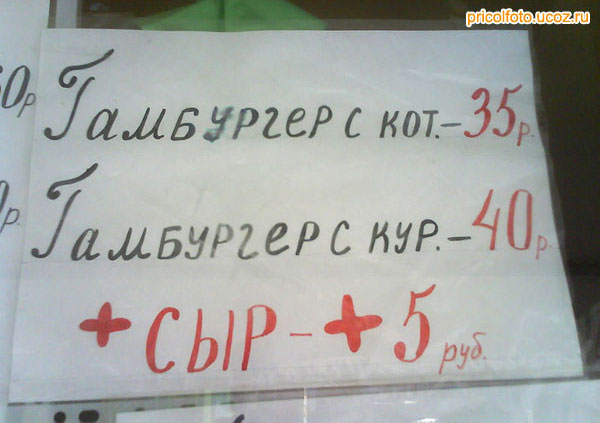 pricolfoto.ucoz.ru
0р
Гамбургер с кот.-35р.
р.
Гамбургер с кур.-40р
+ сыр - + 5 руб.